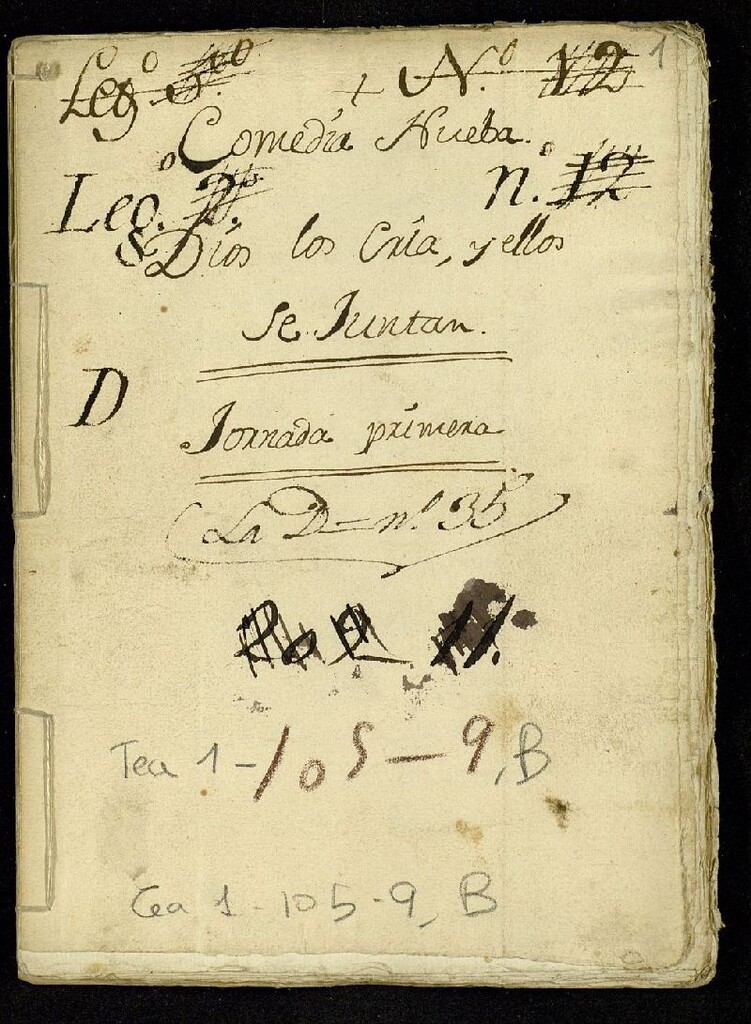 1
Leg.º 3.º + N.º 12
Comedia Nueba.
Leg.º 2.º n.º 12
Dios los Cría, y ellos
Se Juntan.
D
Jornada primera
La D n.º 35
11.
Tea 1-105-9, B
Tea 1-105-9, B